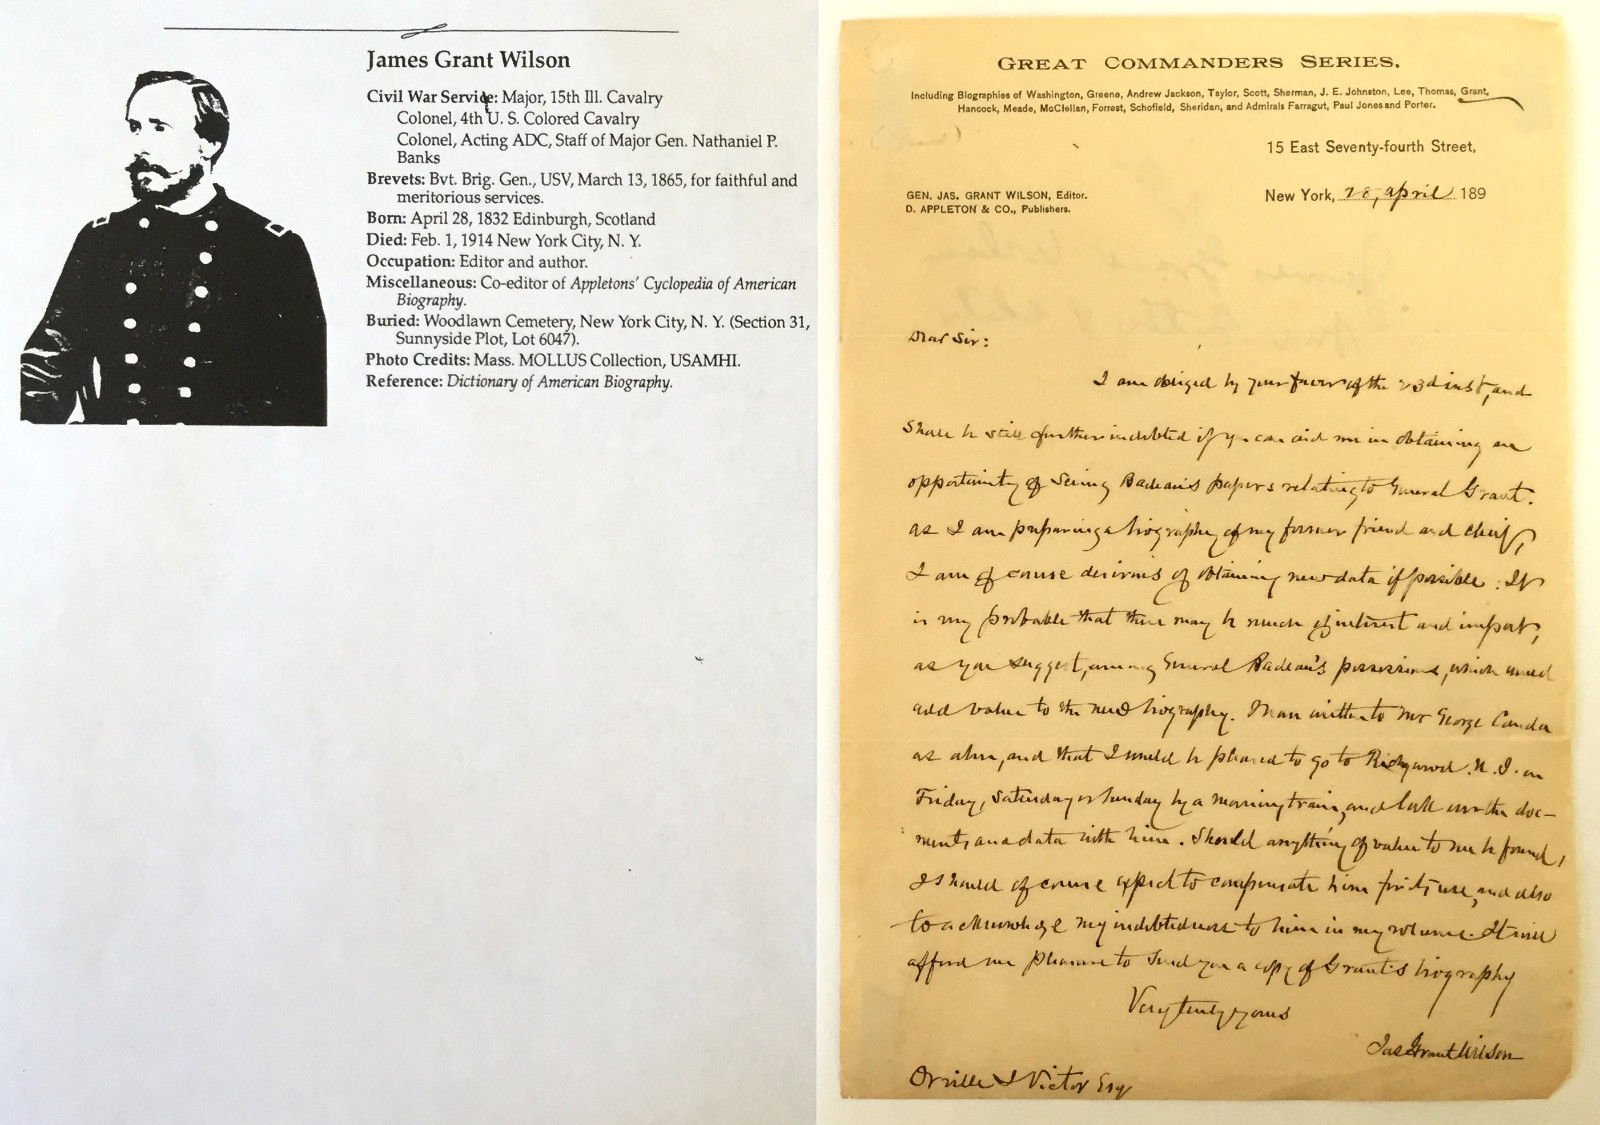 James Grant Wilson
Civil War Service: Major, 15th Ill. Cavalry
Colonel, 4th U. S. Colored Cavalry
Colonel, Acting ADC, Staff of Major Gen. Nathaniel P.
Banks
Brevets: Bvt. Brig. Gen., USV, March 13, 1865, for faithful and
meritorious services.
Born: April 28, 1832 Edinburgh, Scotland
Died: Feb. 1, 1914 New York City, N. Y.
Occupation: Editor and author.
Miscellaneous: Co-editor of Appletons' Cyclopedia of American
Biography.
Buried: Woodlawn Cemetery, New York City, N. Y. (Section 31,
Sunnyside Plot, Lot 6047).
Photo Credits: Mass. MOLLUS Collection, USAMHI.
Reference: Dictionary of American Biography.
GREAT COMMANDERS SERIES.
Including Biographies of Washington, Greene, Andrew Jackson, Taylor, Scott, Sherman, J. E. Johnston, Lee, Thomas, Grant,
Hancock, Meade, McClellan, Forrest, Schofield, Sheridan, and Admirals Farragut, Paul Jones and Porter.
15 East Seventy-fourth Street,
GEN. JAS. GRANT WILSON, Editor.
D. APPLETON & CO., Publishers.
New York, 28, April 189
Dear Sir:
I am obliged by your favor of the 23d inst, and
Shall be still further indebted if you can aid me in obtaining an
opportunity of Seeing Badeau's papers relating to General Grant.
as I am preparing a biography of my former friend and chief,
I am of course desirous of obtaining new data if possible. It
is very probable that there may be much of interest and import,
as you suggest, among General Badeau's possessions, which would
add value to the new biography. I have written to Mr George
as above, and that I would be pleased to go to Ridgewood N. J. on
Friday, Saturday or Sunday by a morning train, and look over the doc-
ments and data with him. Should anything of value to me be found,
I should of course expect to compensate him for its use, and also
to acknowledge my indebtedness to him in my volume. It will
afford me pleasure to Send you a copy of Grant's biography
Very truly yours
Jas Grant Wilson
Orville J Victor Esq